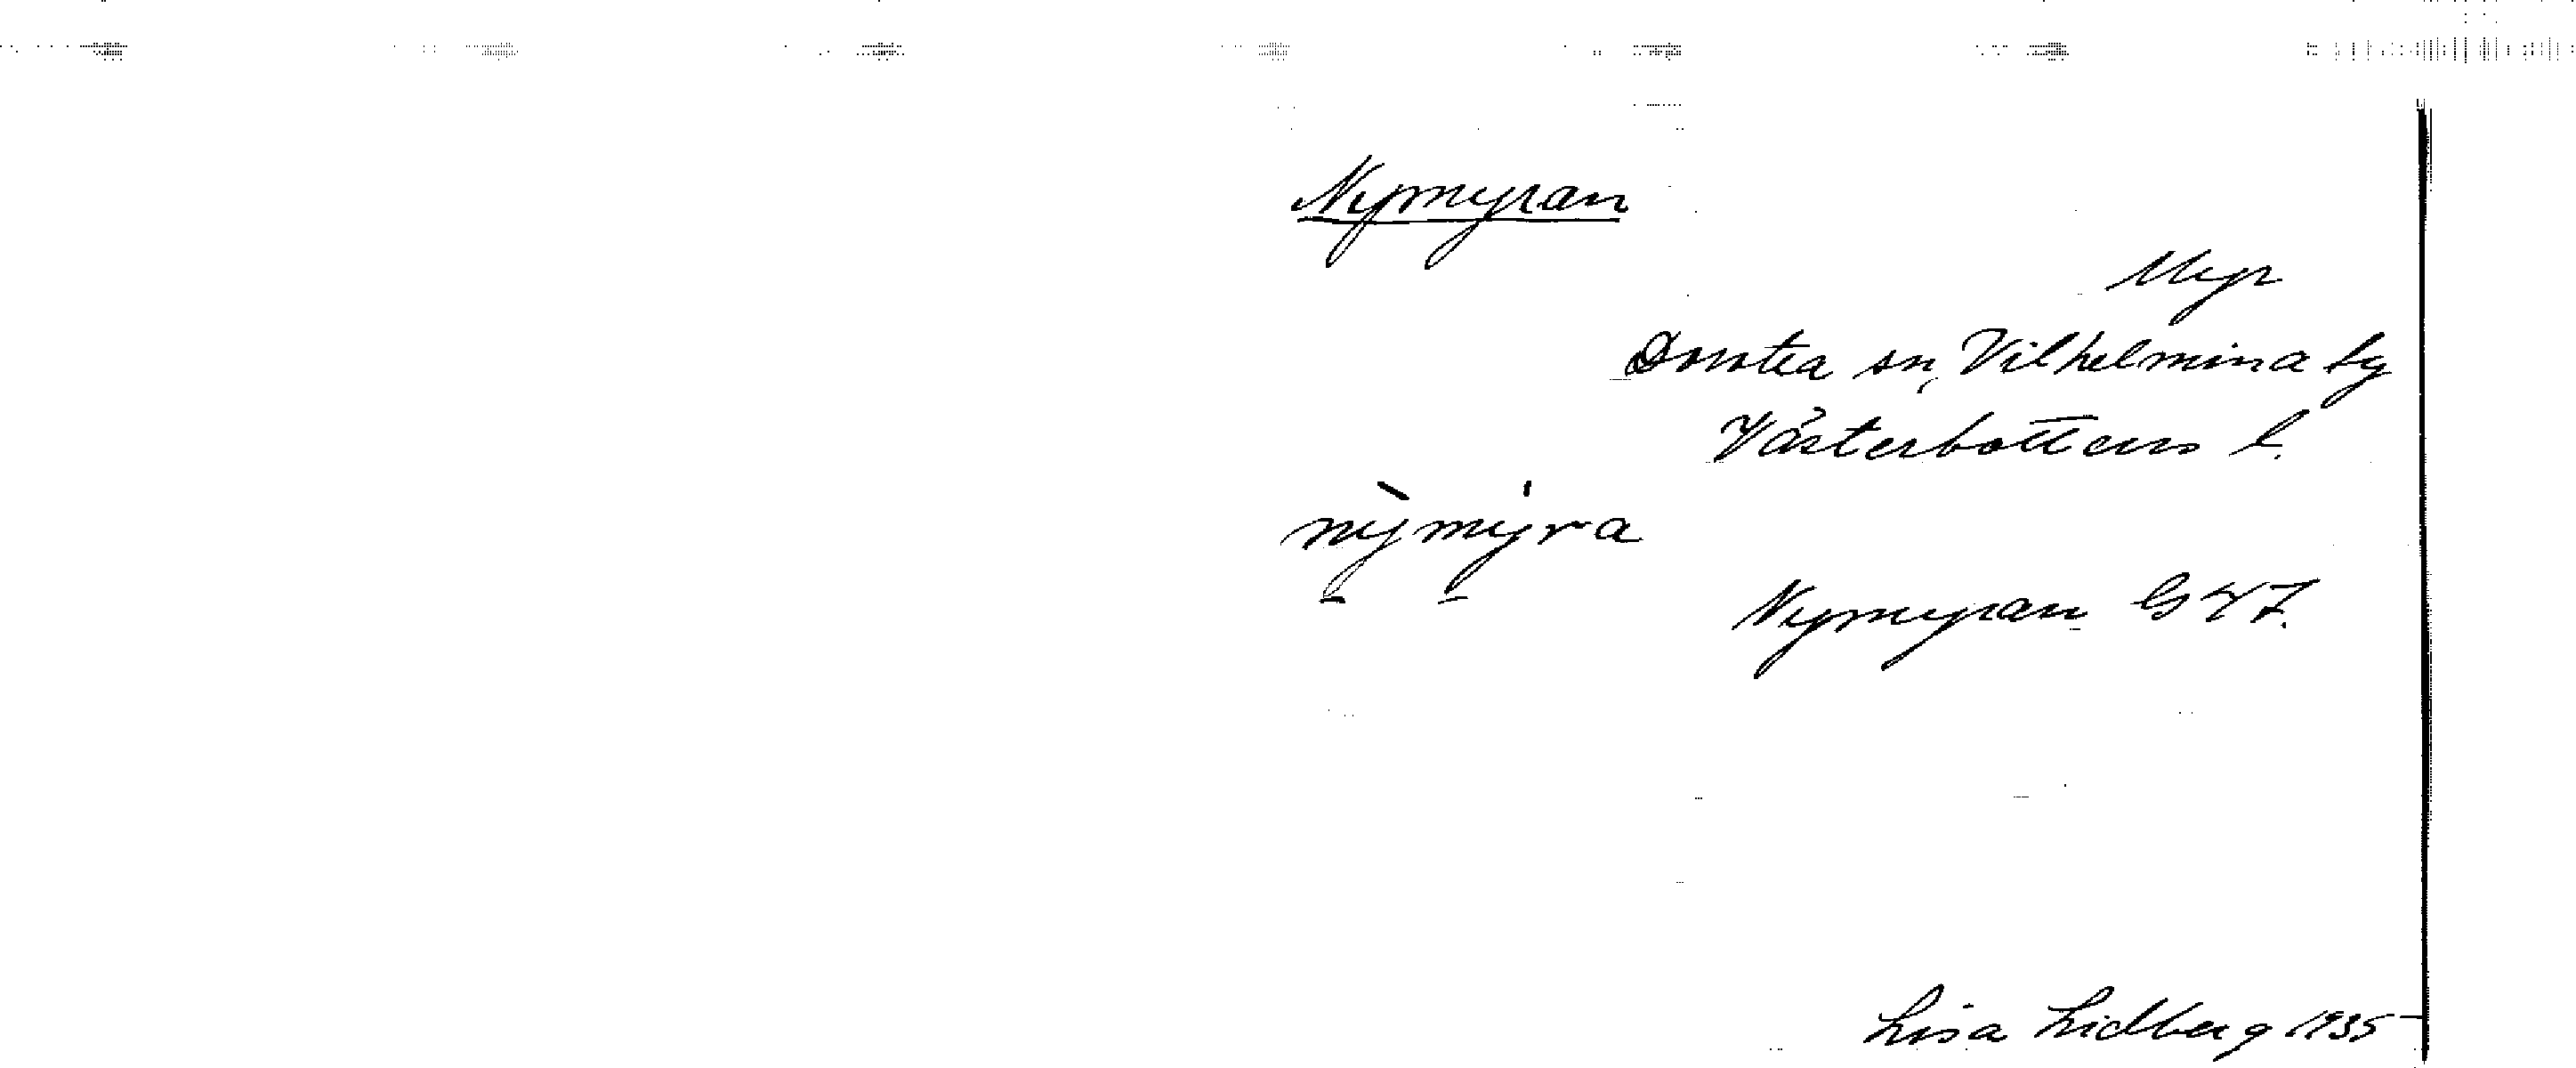 Nymyran
Myr
Dorotea sn, Vilhelmina tg
Västerbottens l.
nỳmýra
Nymyran G47.
Lisa Lidberg 1935